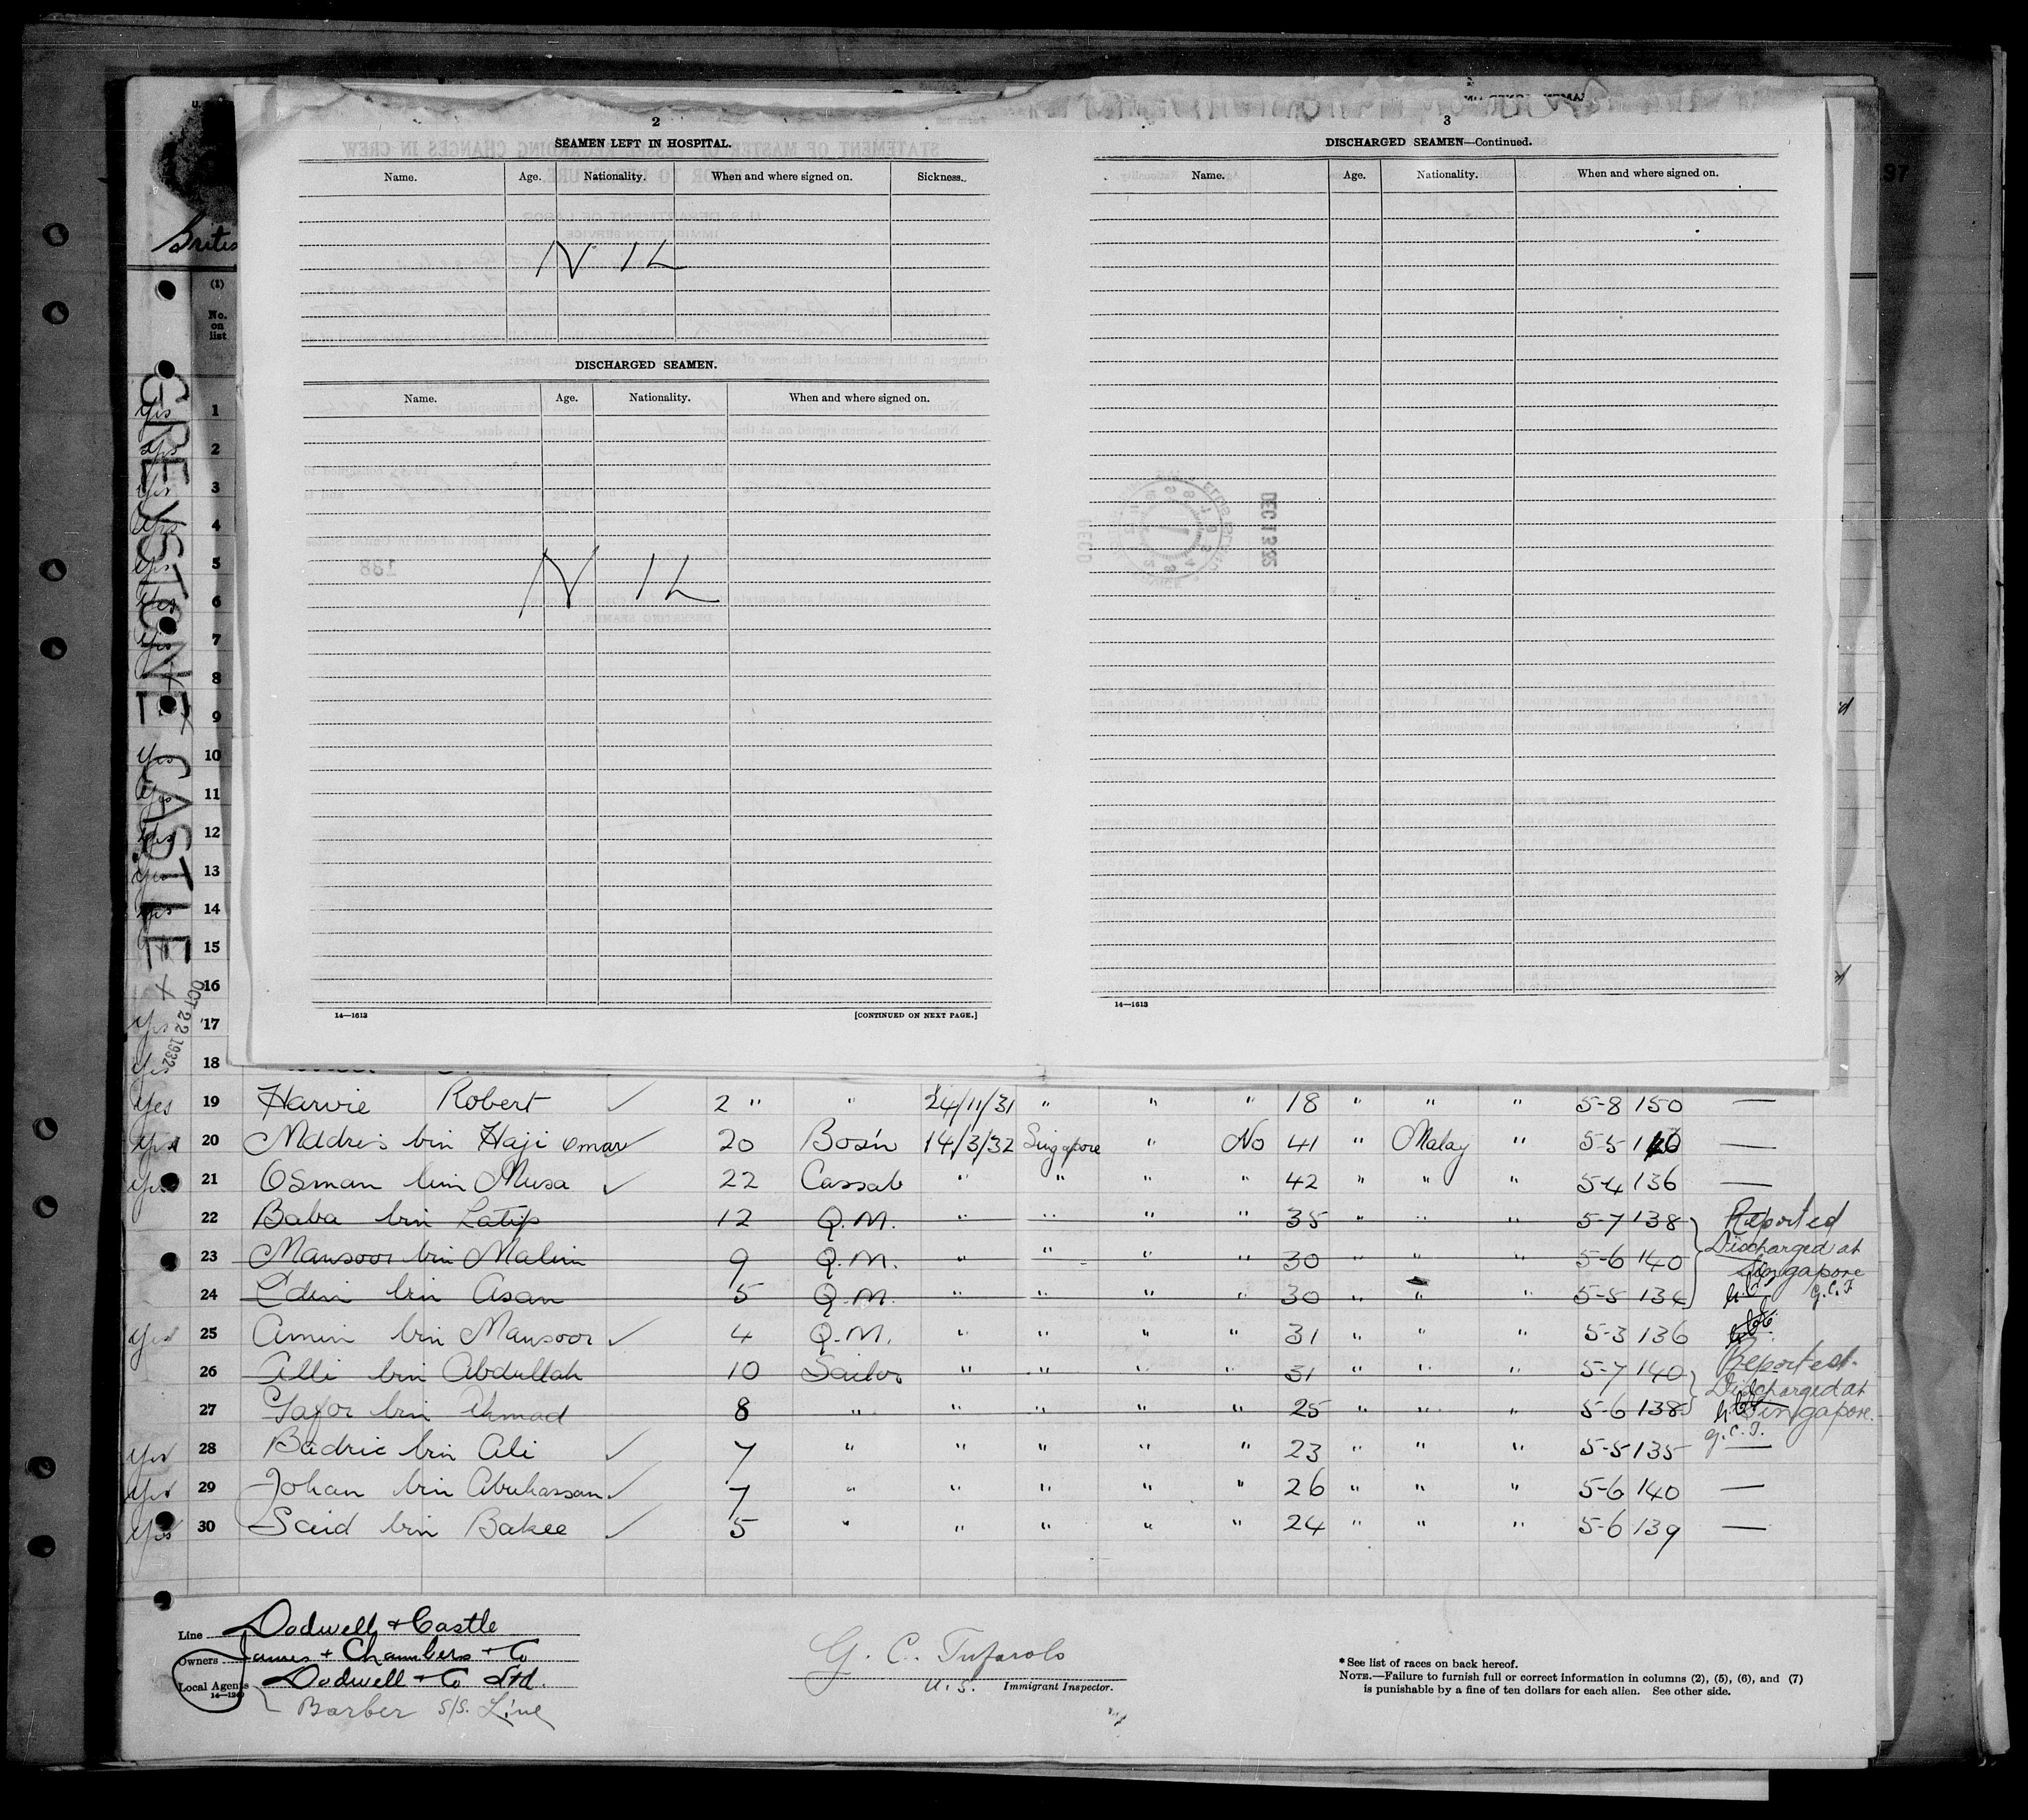 2
SEAMEN LEFT IN HOSPITAL.
Name. Age. Nationality. When and where signed on. Sickness.
NIL
DISCHARGED SEAMEN.
Name. Age. Nationality. When and where signed on.
NIL
14—1613 [CONTINUED ON NEXT PAGE.]
3
DISCHARGED SEAMEN—Continued.
Name. Age. Nationality. When and where signed on.
14—1613
97
Britis
(1)
No. on list
GREYSTONE CASTLE
OCT 22 1932
Yes 1
yes 2
Yes 3
Yes 4
Yes 5
Yes 6
Yes 7
8
9
Yes 10
Yes 11
Yes 12
Yes 13
Yes 14
15
+ 16
Yes 17
Yes 18
Yes 19 Harvie Robert ✓ 2 " " 24/11/31 " " " 18 " " " 5-8 150 —
Yes 20 Mddris bin Haji Omar ✓ 20 Bos'n 14/3/32 Singapore " No 41 " Malay " 5-5 —
Yes 21 Osman bin Musa ✓ 22 Cassab " " " " 42 " " " 5-4 136 —
22 Baba bin Latip 12 Q.M. " " " " 35 " " " 5-7 138 Reported
23 Mansoor bin Malim 9 Q.M. " " " " 30 " " " 5-6 140 Discharged at
Singapore
24 Edin bin Asan 5 Q.M. " " " " 30 " " " 5-5 134 G.C.T
Yes 25 Amin bin Mansoor ✓ 4 Q.M. " " " " 31 " " " 5-3 136
26 Alli bin Abdullah 10 Sailor " " " " 31 " " " 5-7 140 Reported.
Discharged at
27 Gafor bin Ahmad 8 " " " " " 25 " " " 5-6 138 Singapore.
G.C.T.
Yes 28 Badric bin Ali ✓ 7 " " " " " 23 " " " 5-5 135 —
Yes 29 Johan bin Abuhassan ✓ 7 " " " " " 26 " " " 5-6 140 —
Yes 30 Said bin Bakee ✓ 5 " " " " " 24 " " " 5-6 139 —
Line Dodwell & Castle
Owners James + Chambers + Co
Local Agents Dodwell + Co Ltd.
14—1240
Barber S/S. Line
G. C. Tufarolo
U.S. Immigrant Inspector.
* See list of races on back hereof.
NOTE.—Failure to furnish full or correct information in columns (2), (5), (6), and (7)
is punishable by a fine of ten dollars for each alien. See other side.